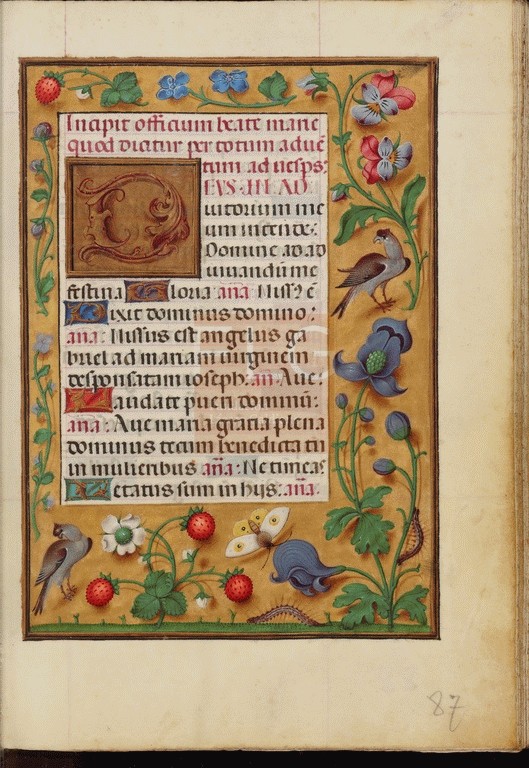 Incipit officium beate marie
quod dicitur per totum aduē
tum ad uesp̄s:
DEVS · IN · AD
iutorium me
um intende:
Domine ad ad
iuuandū me
festina Gloria an̄a: Missꝰ ē
Dixit dominus domino:
an̄a: Missus est angelus ga
briel ad mariam uirginem
desponsatam ioseph: an̄ Aue:
Laudate pueri dominū:
an̄a: Aue maria gratia plena
dominus tecum benedicta tu
in mulieribus an̄a: Ne timeas
Letatus sum in hijs: an̄a.
87